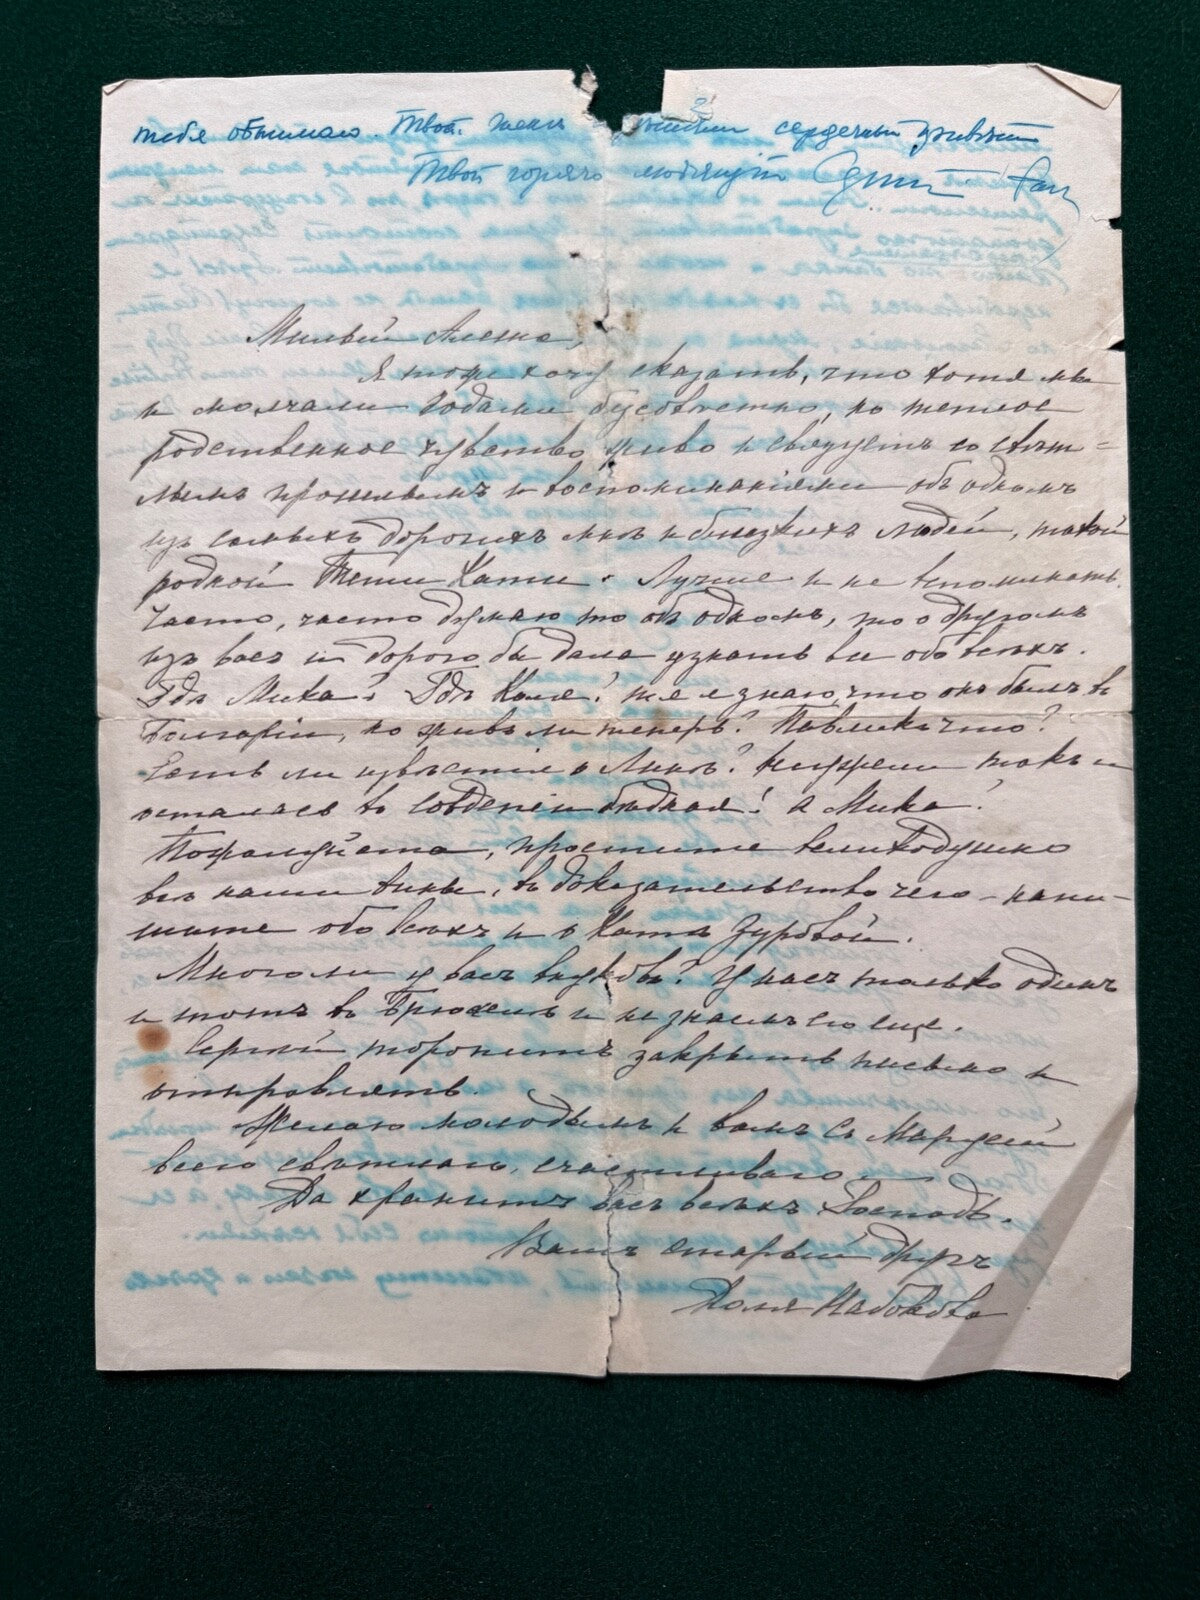 тебя обнимаю. Твоей жене сердечный привѣтъ
Твой горячо любящий
Милый Алеша,
Я тоже хочу сказать, что хотя мы
и молчали годами безсовѣстно, но теплое
родственное чувство живо и связуетъ со свѣт=
лымъ прошлымъ и воспоминаніями объ одномъ
изъ самыхъ дорогихъ мнѣ и близкихъ людей, такой
родной Тети Кати. Лучше и не вспоминать.
Часто, часто думаю то объ одномъ, то о другомъ
изъ васъ и дорого бы дала узнать вы обо всѣхъ.
Гдѣ Мика? Гдѣ Коля? я знаю, что онъ былъ въ
Болгаріи, но живъ ли теперь? Павликъ что?
Есть ли извѣстіе о Линѣ? Неужели такъ и
осталась въ Совдепіи бѣдная! а Мика?
Пожалуйста, простите великодушно
всѣ наши вины, въ доказательство чего – напи–
шите обо всѣхъ и о Катѣ Зуровой.
Много ли у васъ внуковъ? У насъ только одинъ
и тотъ въ Брюсселѣ и не знаемъ его еще.
Сергѣй торопитъ закрыть письмо и
отправлять.
Желаю молодымъ и вамъ съ Марусей
всего свѣтлаго, счастливаго.
Да хранитъ васъ всѣхъ Господь.
Вашъ старый другъ
Набокова